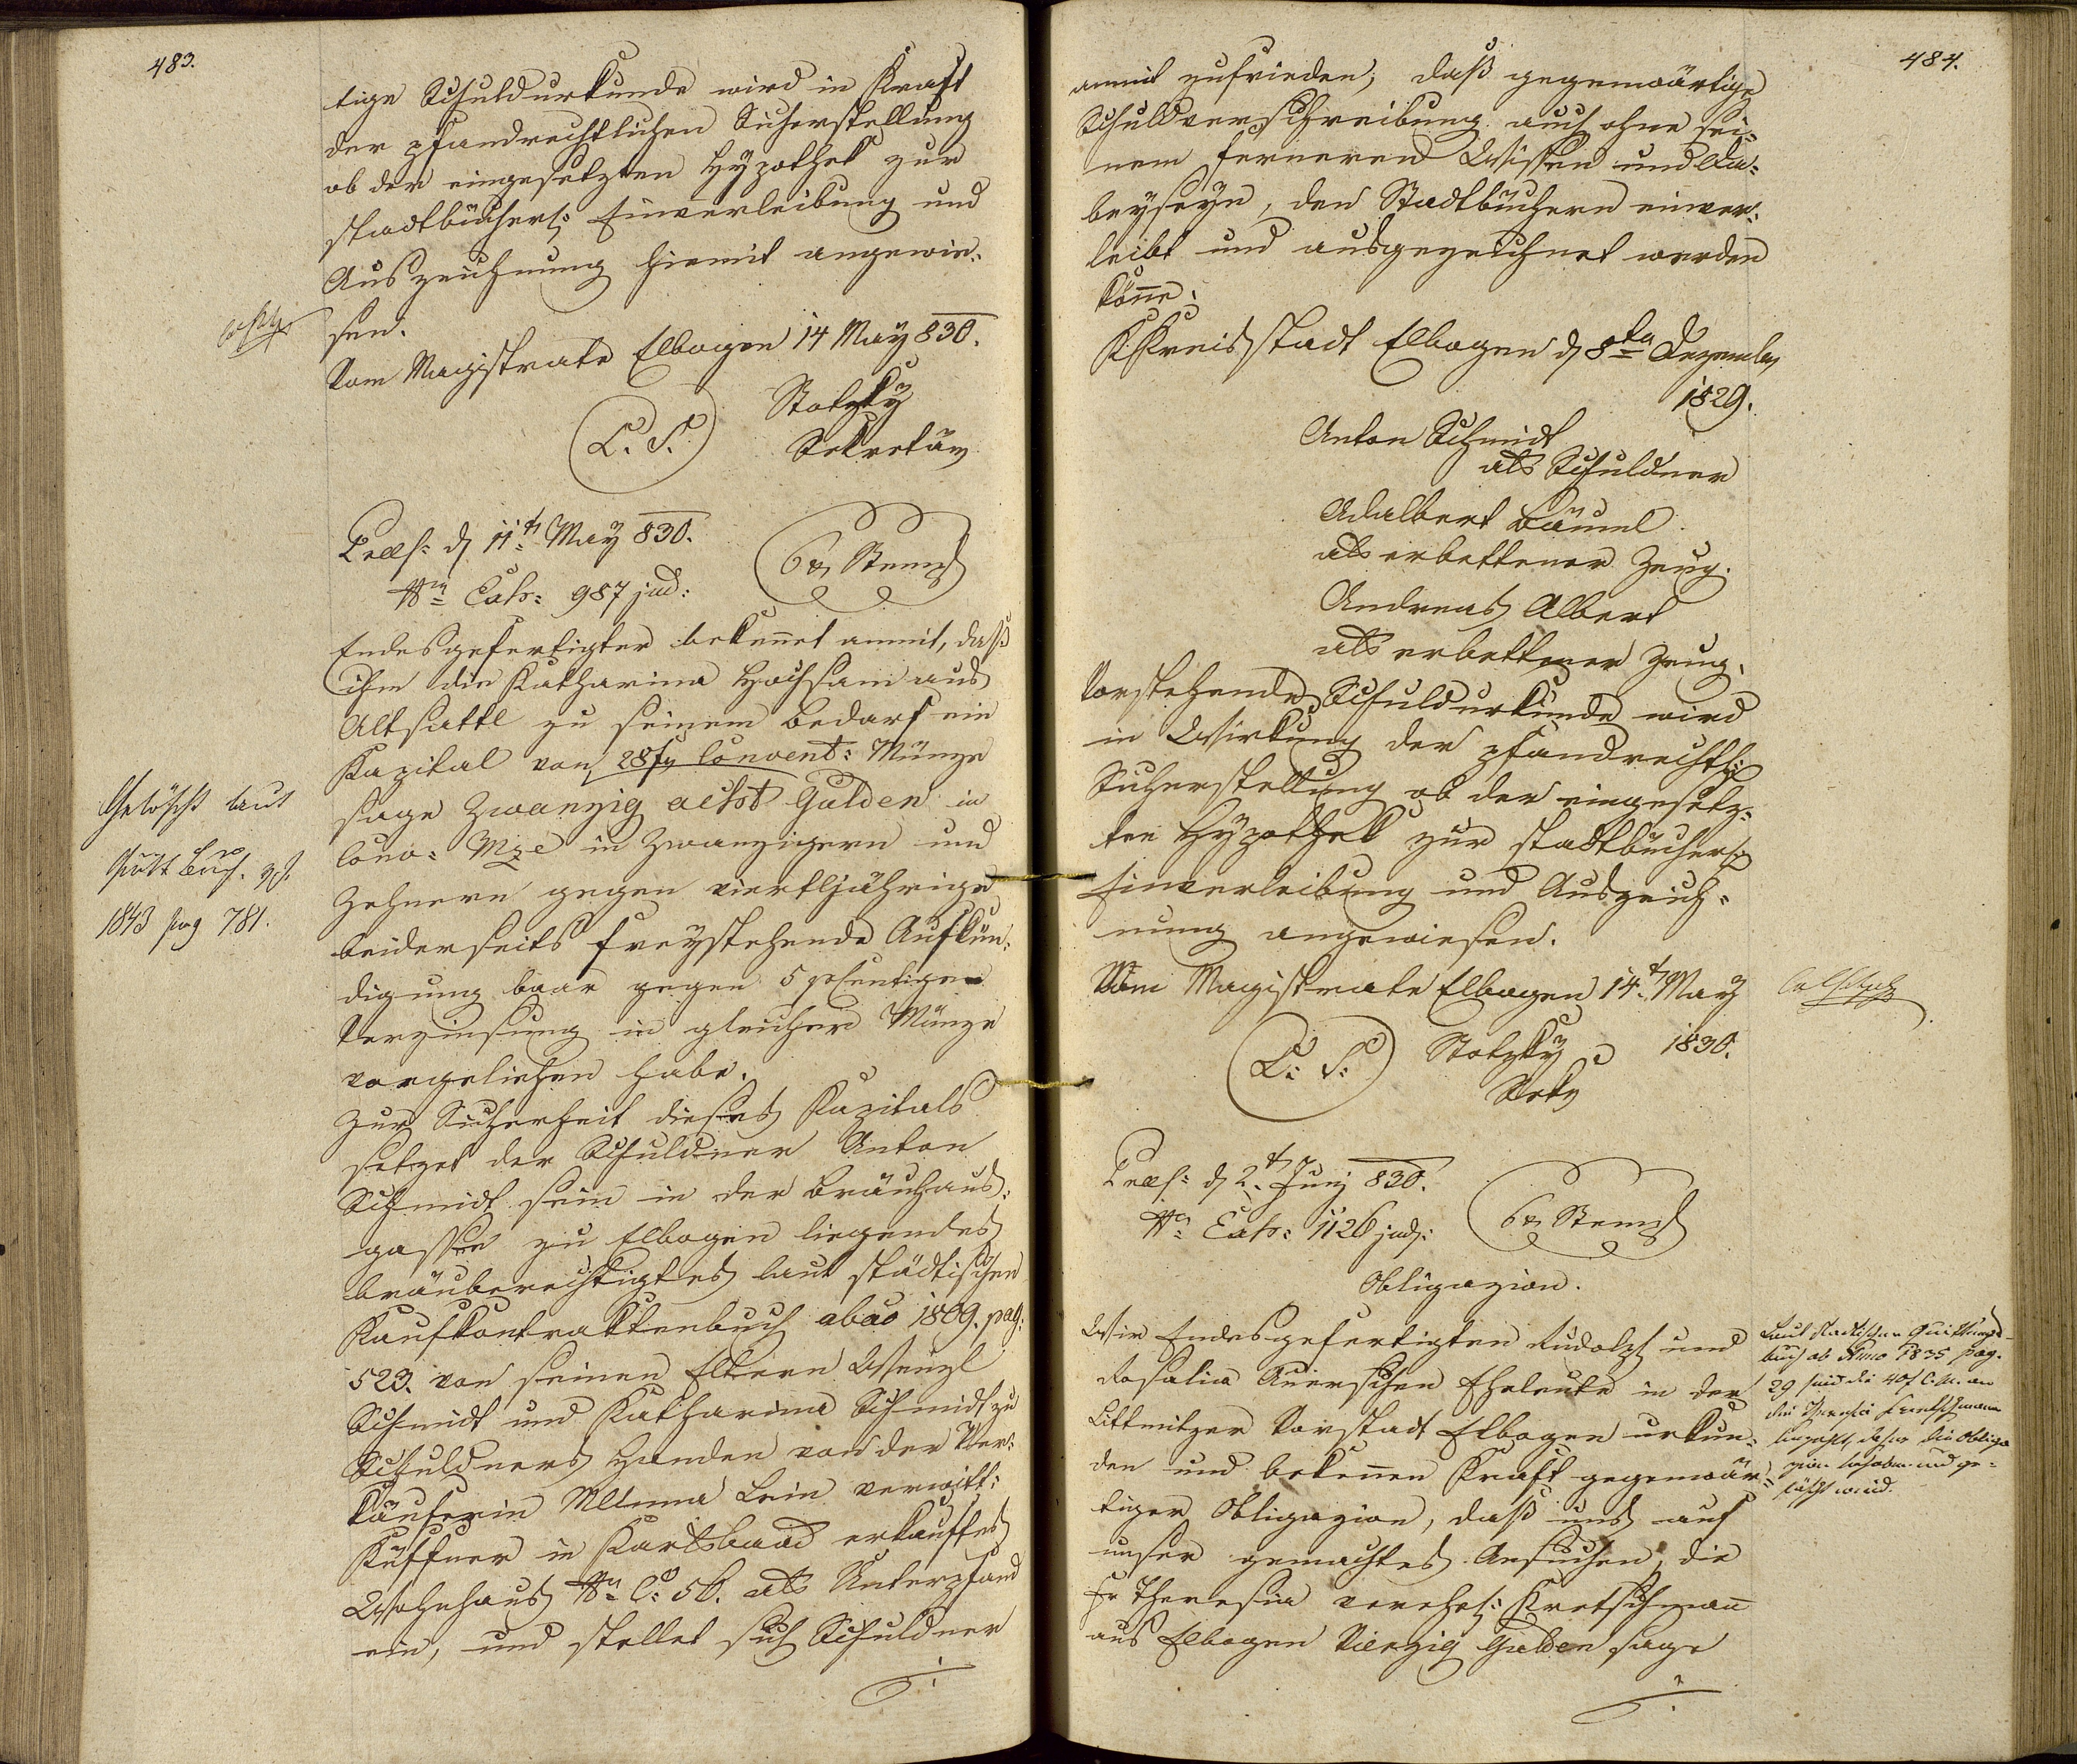 483.
tige Schuldurkunde wird in Kraft
der pfandrechtlichen Sicherstellung
ob der eingesetzten Hypothek zur
stadtbücherl: Einverleibung und
Auszeichnung hiemit angewie-
sen.
Vom Magistrate Elbogen 14 May 830.
L. S.
Stotzky
Sekretär
Praes: d 11t May 830.
Nro Exh: 987 jud:
6 x Stempl
Endesgefertigter bekennet anmit, daß
ihm die Katharina Hochsam aus
Altsattl zu seinem Bedarf ein
Kapital von 28 f Convent: Münze
sage Zwanzig acht Gulden in
Conv: Mze in Zwanzigern und
Zehnern gegen viertljährige
beiderseits freystehende Aufkün-
digung baar gegen 5 pcentige
Verzinsung in gleicher Münze
vorgeliehen habe.
Zur Sicherheit dieses Kapitals
setzet der Schuldner Anton
Schmidt sein in der Bräuhaus-
gasse zu Elbogen liegendes
bräuberechtigtes laut städtischen
Kaufkontraktenbuch abao 1809. pag:
523. von seinen Eltern Wenzl
Schmidt und Katharina Schmidt zu
Schuldners Handen von der Ver-
käuferin verwitt:
Küffner in Karlsbaad erkauftes
Wohnhaus Nro C: 56. als Unterpfand
ein, und stellet sich Schuldner
Gelöscht laut
Quitt Buch
1843 pag 781.
484.
anmit zufrieden, daß gegenwärtige
Schuldverschreibung auch ohne sei-
nem ferneren Wissen und
beyseyn, den Stadtbüchern einver-
leibt und ausgezeichnet werden
könne.
K Kreisstadt Elbogen d 8ten Dezember
1829.
Anton Schmidt
als Schuldner
Adalbert Bäuml
als erbettener Zeug.
Andreas Albert
als erbettener Zeug.
Vorstehende Schuldurkunde wird
in Wirkung der pfandrechtl:
Sicherstellung ob der eingesetz-
ten Hypothek zur stadtbücherl:
Einverleibung und Auszeich-
nung angewiesen.
Vom Magistrate Elbogen 14t May
1830.
L: S:
Stotzky
Sekr
Praes: d 2t Juny 830.
Nro Exh: 1126 jud:
6 x Stempl
Obligazion.
Wir Endesgefertigten Rudolph und
Rosalia Auerschen Eheleute in der
Littmitzer Vorstadt Elbogen urkun-
den und bekennen Kraft gegenwär-
tiger Obligazion, daß uns auf
unser gemachtes Ansuchen, die
Fr Theresia verehel: Kretschmann
aus Elbogen Vierzig Gulden sage
Laut städtischen Quittungs-
buch ab Anno 1835 pag.
29 sind die 40 f C. M. an
die Theresia Kretschmann
bezahlt, daher die Obliga-
zion behoben und ge-
löscht wird.